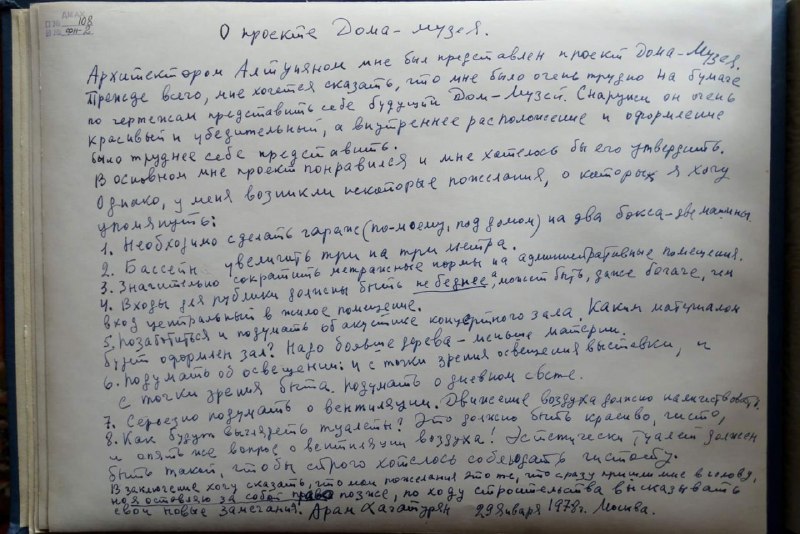 ДМАХ
П № 108
И № ФП-2
О проекте Дома-музея.
Архитектором Алтуняном мне был представлен проект Дома-Музея.
Прежде всего, мне хочется сказать, что мне было очень трудно на бумаге
по чертежам представить себе будущий Дом-Музей. Снаружи он очень
красивый и убедительный, а внутреннее расположение и оформление
было труднее себе представить.
В основном мне проект понравился и мне хотелось бы его утвердить.
Однако, у меня возникли некоторые пожелания, о которых я хочу
упомянуть:
1. Необходимо сделать гараж (по-моему, под домом) на два бокса-две машины.
2. Бассейн увеличить три на три метра.
3. Значительно сократить метражные нормы на административные помещения.
4. Входы для публики должны быть не беднее, а может быть, даже богаче, чем
вход центральный в жилое помещение.
5. Позаботиться и подумать об акустике концертного зала. Каким материалом
будет оформлен зал? Надо больше дерева - меньше материи.
6. Подумать об освещении: и с точки зрения освещения выставки, и
с точки зрения быта. Подумать о дневном свете.
7. Серьезно подумать о вентиляции. Движение воздуха должно наличествовать.
8. Как будут выглядеть туалеты? Это должно быть красиво, чисто,
и опять же вопрос о вентиляции воздуха! Эстетически туалет должен
быть такой, чтобы строго хотелось соблюдать чистоту.
В заключение хочу сказать, что мои пожелания это те, что сразу пришли мне в голову,
но я оставляю за собой право позже, по ходу строительства высказывать
свои новые замечания. Арам Хачатурян 29 января 1978 г. Москва.